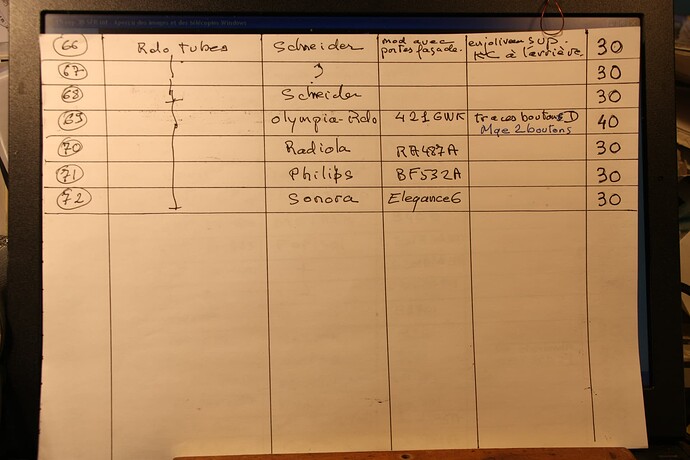 66 Rdo tubes Schneider mod avec portes façade. enjoliveur SUP. HC à l'arrière. 30
67 ? 30
68 Schneider 30
69 Olympia-Rdo 421GWK traces boutons D Mqe 2 boutons 40
70 Radiola RA487A 30
71 Philips BF532A 30
72 Sonora Elegance6 30